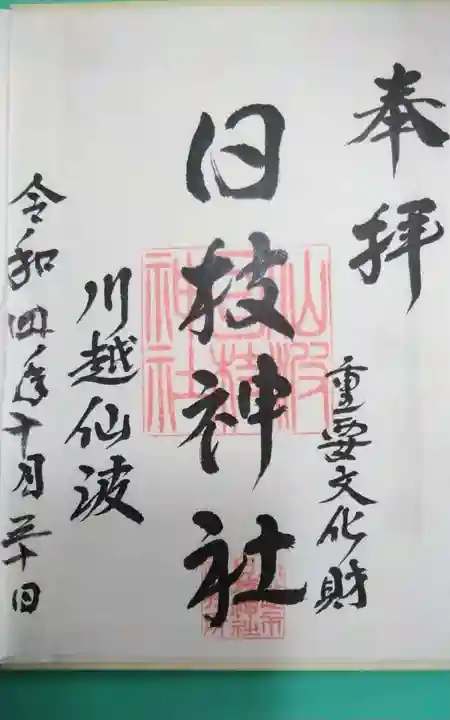 奉拝
重要文化財
日枝神社
川越仙波
令和四年十月三十日
仙波
日枝
神社